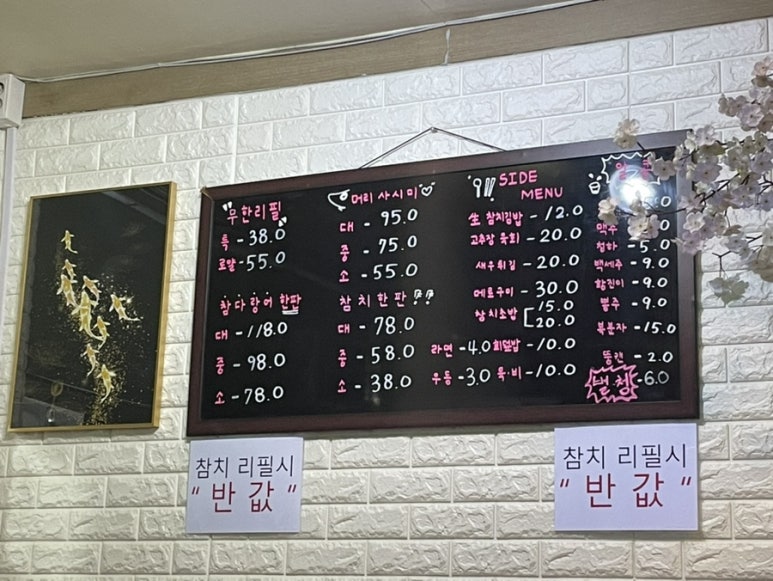 "무한리필"
특 - 38.0
로얄 - 55.0
참다랑어 한판
대 - 118.0
중 - 98.0
소 - 78.0
머리사시미
대 - 95.0
중 - 75.0
소 - 55.0
참치한판
대 - 78.0
중 - 58.0
소 - 38.0
SIDE
MENU
生 참치김밥 - 12.0
고추장 육회 - 20.0
새우튀김 - 20.0
메로구이 - 30.0
참치초밥 [15.0
20.0
라면 - 4.0 회덮밥 - 10.0
우동 - 3.0 육·비 - 10.0
맥주
청하 - 5.0
백세주 - 9.0
황진이 - 9.0
뽕주 - 9.0
복분자 - 15.0
뚱캔 - 2.0
별청 - 6.0
참치 리필시
"반값"
참치 리필시
"반값"